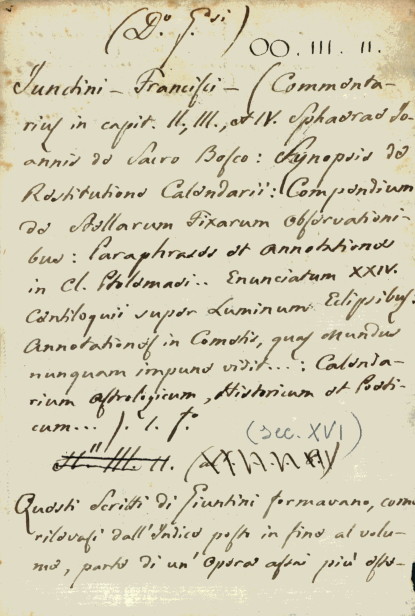 (D.º G.si)
OO. III. 11.
Junctini – Francisci – (Commenta-
rius in capit. II, III., et IV. Sphaerae Jo-
annis de Sacro Bosco: Synopsis de
Restitutione Calendarii: Compendium
de Stellarum Fixarum observationi-
bus: Paraphrases et Annotationes
in Cl. Ptolemaei.. Enunciatum XXIV.
Centiloquii super Luminum Eclipsibus.
Annotationes in Cometis, quas Mundus
nunquam impune vidit...: Calenda-
rium astrologicum, Historicum et Poeti-
cum... ). 1. f.º
(sec. XVI)
11.
Questi Scritti di Giuntini formavano, come
rilevasi dall'Indice posto in fine al volu-
me, parte di un'Opera assai più este-